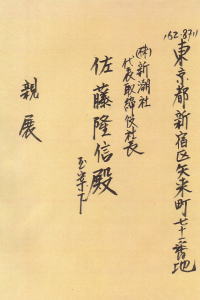 162-8711
東京都新宿区矢来町七十一番地
㈱新潮社
代表取締役社長
佐藤隆信殿
玉案下
親展